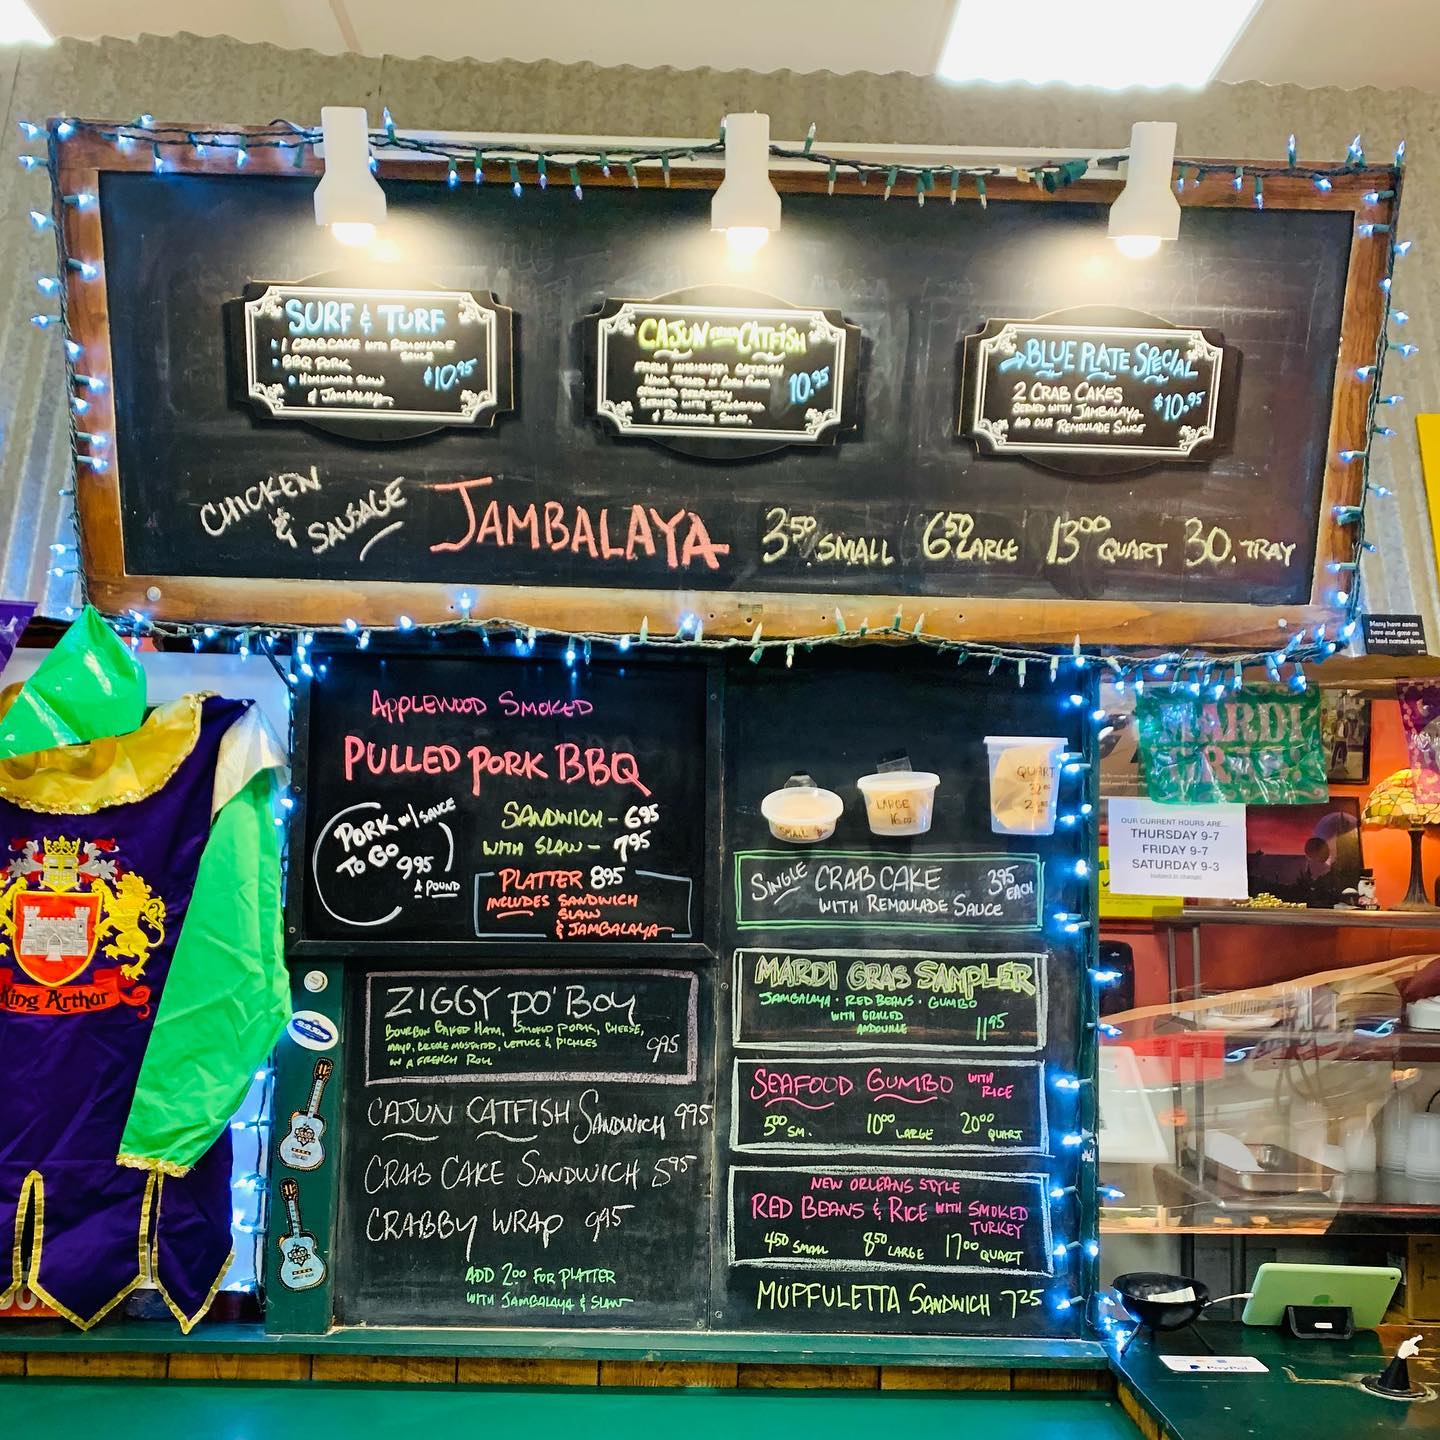 SURF & TURF
• 1 CRABCAKE WITH REMOULADE
SAUCE
• BBQ PORK
• HOMEMADE SLAW
& JAMBALAYA
$10.95
CAJUN FRIED CATFISH
FRESH MISSISSIPPI CATFISH
HAND TOSSED IN CORN FLOUR
FRIED PERFECTLY
SERVED WITH JAMBALAYA
& REMOULADE SAUCE.
10.95
BLUE PLATE SPECIAL
2 CRAB CAKES
SERVED WITH JAMBALAYA
AND OUR REMOULADE SAUCE
$10.95
CHICKEN
& SAUSAGE
JAMBALAYA 3.50 SMALL 6.50 LARGE 13.00 QUART 30. TRAY
Many have eaten
here and gone on
to lead normal lives.
APPLEWOOD SMOKED
PULLED PORK BBQ
PORK W/ SAUCE
TO GO 9.95
A POUND
SANDWICH - 6.95
WITH SLAW - 7.95
PLATTER 8.95
INCLUDES SANDWICH
SLAW
& JAMBALAYA
ZIGGY PO' BOY
BOURBON BAKED HAM, SMOKED PORK, CHEESE,
MAYO, CREOLE MUSTARD, LETTUCE & PICKLES
ON A FRENCH ROLL
9.95
CAJUN CATFISH SANDWICH 9.95
CRAB CAKE SANDWICH 5.95
CRABBY WRAP 9.95
ADD 2.00 FOR PLATTER
WITH JAMBALAYA & SLAW
SMALL
LARGE
16 oz.
QUART
32 oz
SINGLE CRAB CAKE 3.95 EACH
WITH REMOULADE SAUCE
MARDI GRAS SAMPLER
JAMBALAYA • RED BEANS • GUMBO
WITH GRILLED
ANDOUILLE
11.95
SEAFOOD GUMBO WITH RICE
5.00 SM. 10.00 LARGE 20.00 QUART
NEW ORLEANS STYLE
RED BEANS & RICE WITH SMOKED
TURKEY
4.50 SMALL 8.50 LARGE 17.00 QUART
MUFFULETTA SANDWICH 7.25
King Arthur
MARDI
GRAS!
OUR CURRENT HOURS ARE...
THURSDAY 9-7
FRIDAY 9-7
SATURDAY 9-3
(subject to change)
PayPal